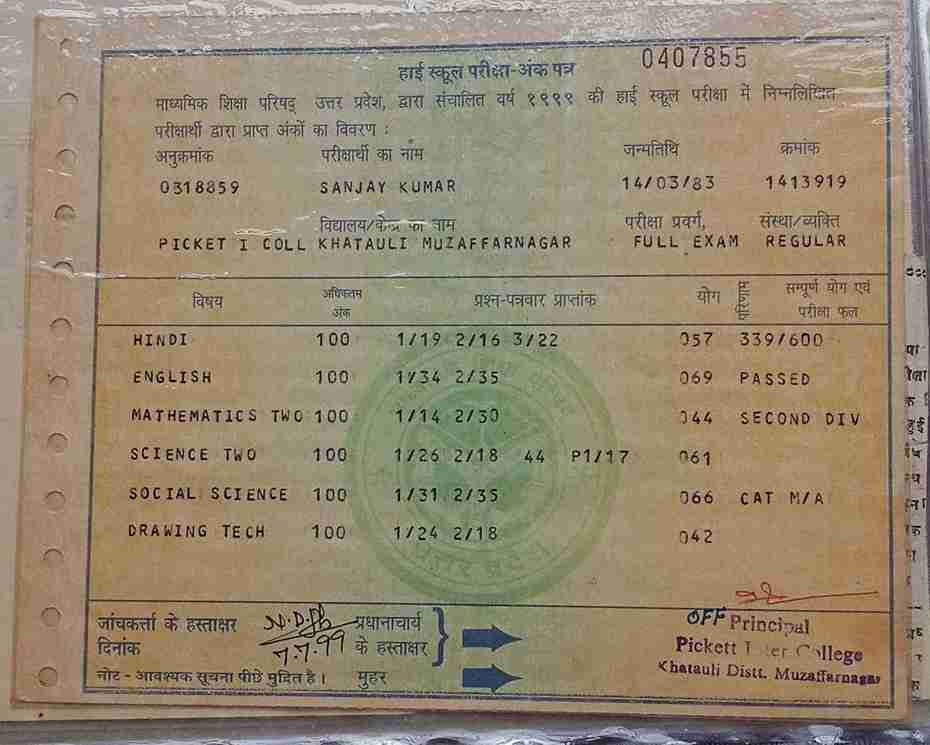 0407855
हाई स्कूल परीक्षा-अंक पत्र
माध्यमिक शिक्षा परिषद् उत्तर प्रदेश, द्वारा संचालित वर्ष १९९९ की हाई स्कूल परीक्षा में निम्नलिखित
परीक्षार्थी द्वारा प्राप्त अंकों का विवरण :
अनुक्रमांक परीक्षार्थी का नाम जन्मतिथि क्रमांक
0318859 SANJAY KUMAR 14/03/83 1413919
विद्यालय/केन्द्र का नाम परीक्षा प्रवर्ग, संस्था/व्यक्ति
PICKET I COLL KHATAULI MUZAFFARNAGAR FULL EXAM REGULAR
विषय अधिकतम अंक प्रश्न-पत्रवार प्राप्तांक योग परिणाम सम्पूर्ण योग एवं परीक्षा फल
HINDI 100 1/19 2/16 3/22 057 339/600
ENGLISH 100 1/34 2/35 069 PASSED
MATHEMATICS TWO 100 1/14 2/30 044 SECOND DIV
SCIENCE TWO 100 1/26 2/18 44 P1/17 061
SOCIAL SCIENCE 100 1/31 2/35 066 CAT M/A
DRAWING TECH 100 1/24 2/18 042
जांचकर्त्ता के हस्ताक्षर प्रधानाचार्य
दिनांक 7.7.99 के हस्ताक्षर
नोट - आवश्यक सूचना पीछे मुद्रित है। मुहर
OFF Principal
Pickett Inter College
Khatauli Distt. Muzaffarnagar